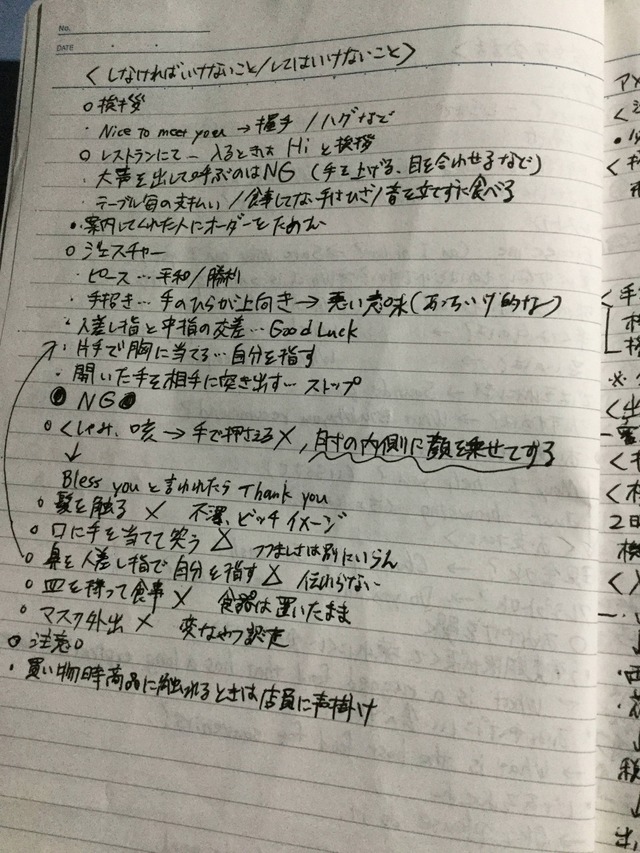 No.
DATE
〈しなければいけないこと/してはいけないこと〉
○ 挨拶
・Nice to meet you → 握手 / ハグなど
○ レストランにて — 入るときは Hi と挨拶
・大声を出して呼ぶのはNG (手を上げる、目を合わせるなど)
・テーブル毎の支払い / 食事してない手はひざ / 音を立てずに食べる
・案内してくれた人にオーダーをたのむ
○ ジェスチャー
・ピース … 平和 / 勝利
・手招き … 手のひらが上向き → 悪い意味 (あっちいけ的な)
・人差し指と中指の交差 … Good Luck
・片手で胸に当てる … 自分を指す
・開いた手を相手に突き出す … ストップ
● NG ●
○ くしゃみ、咳 → 手で押さえる ×, 肘の内側に顔を乗せてする
↓
Bless you と言われたら Thank you
○ 髪を触る × 不潔、ビッチイメージ
○ 口に手を当てて笑う △ つつましさは別にいらん
○ 鼻を人差し指で自分を指す △ 伝わらない
○ 皿を持って食事 × 食器は置いたまま
○ マスク外出 × 変なやつ認定
○ 注意 ○
・買い物時商品に触れるときは店員に声掛け